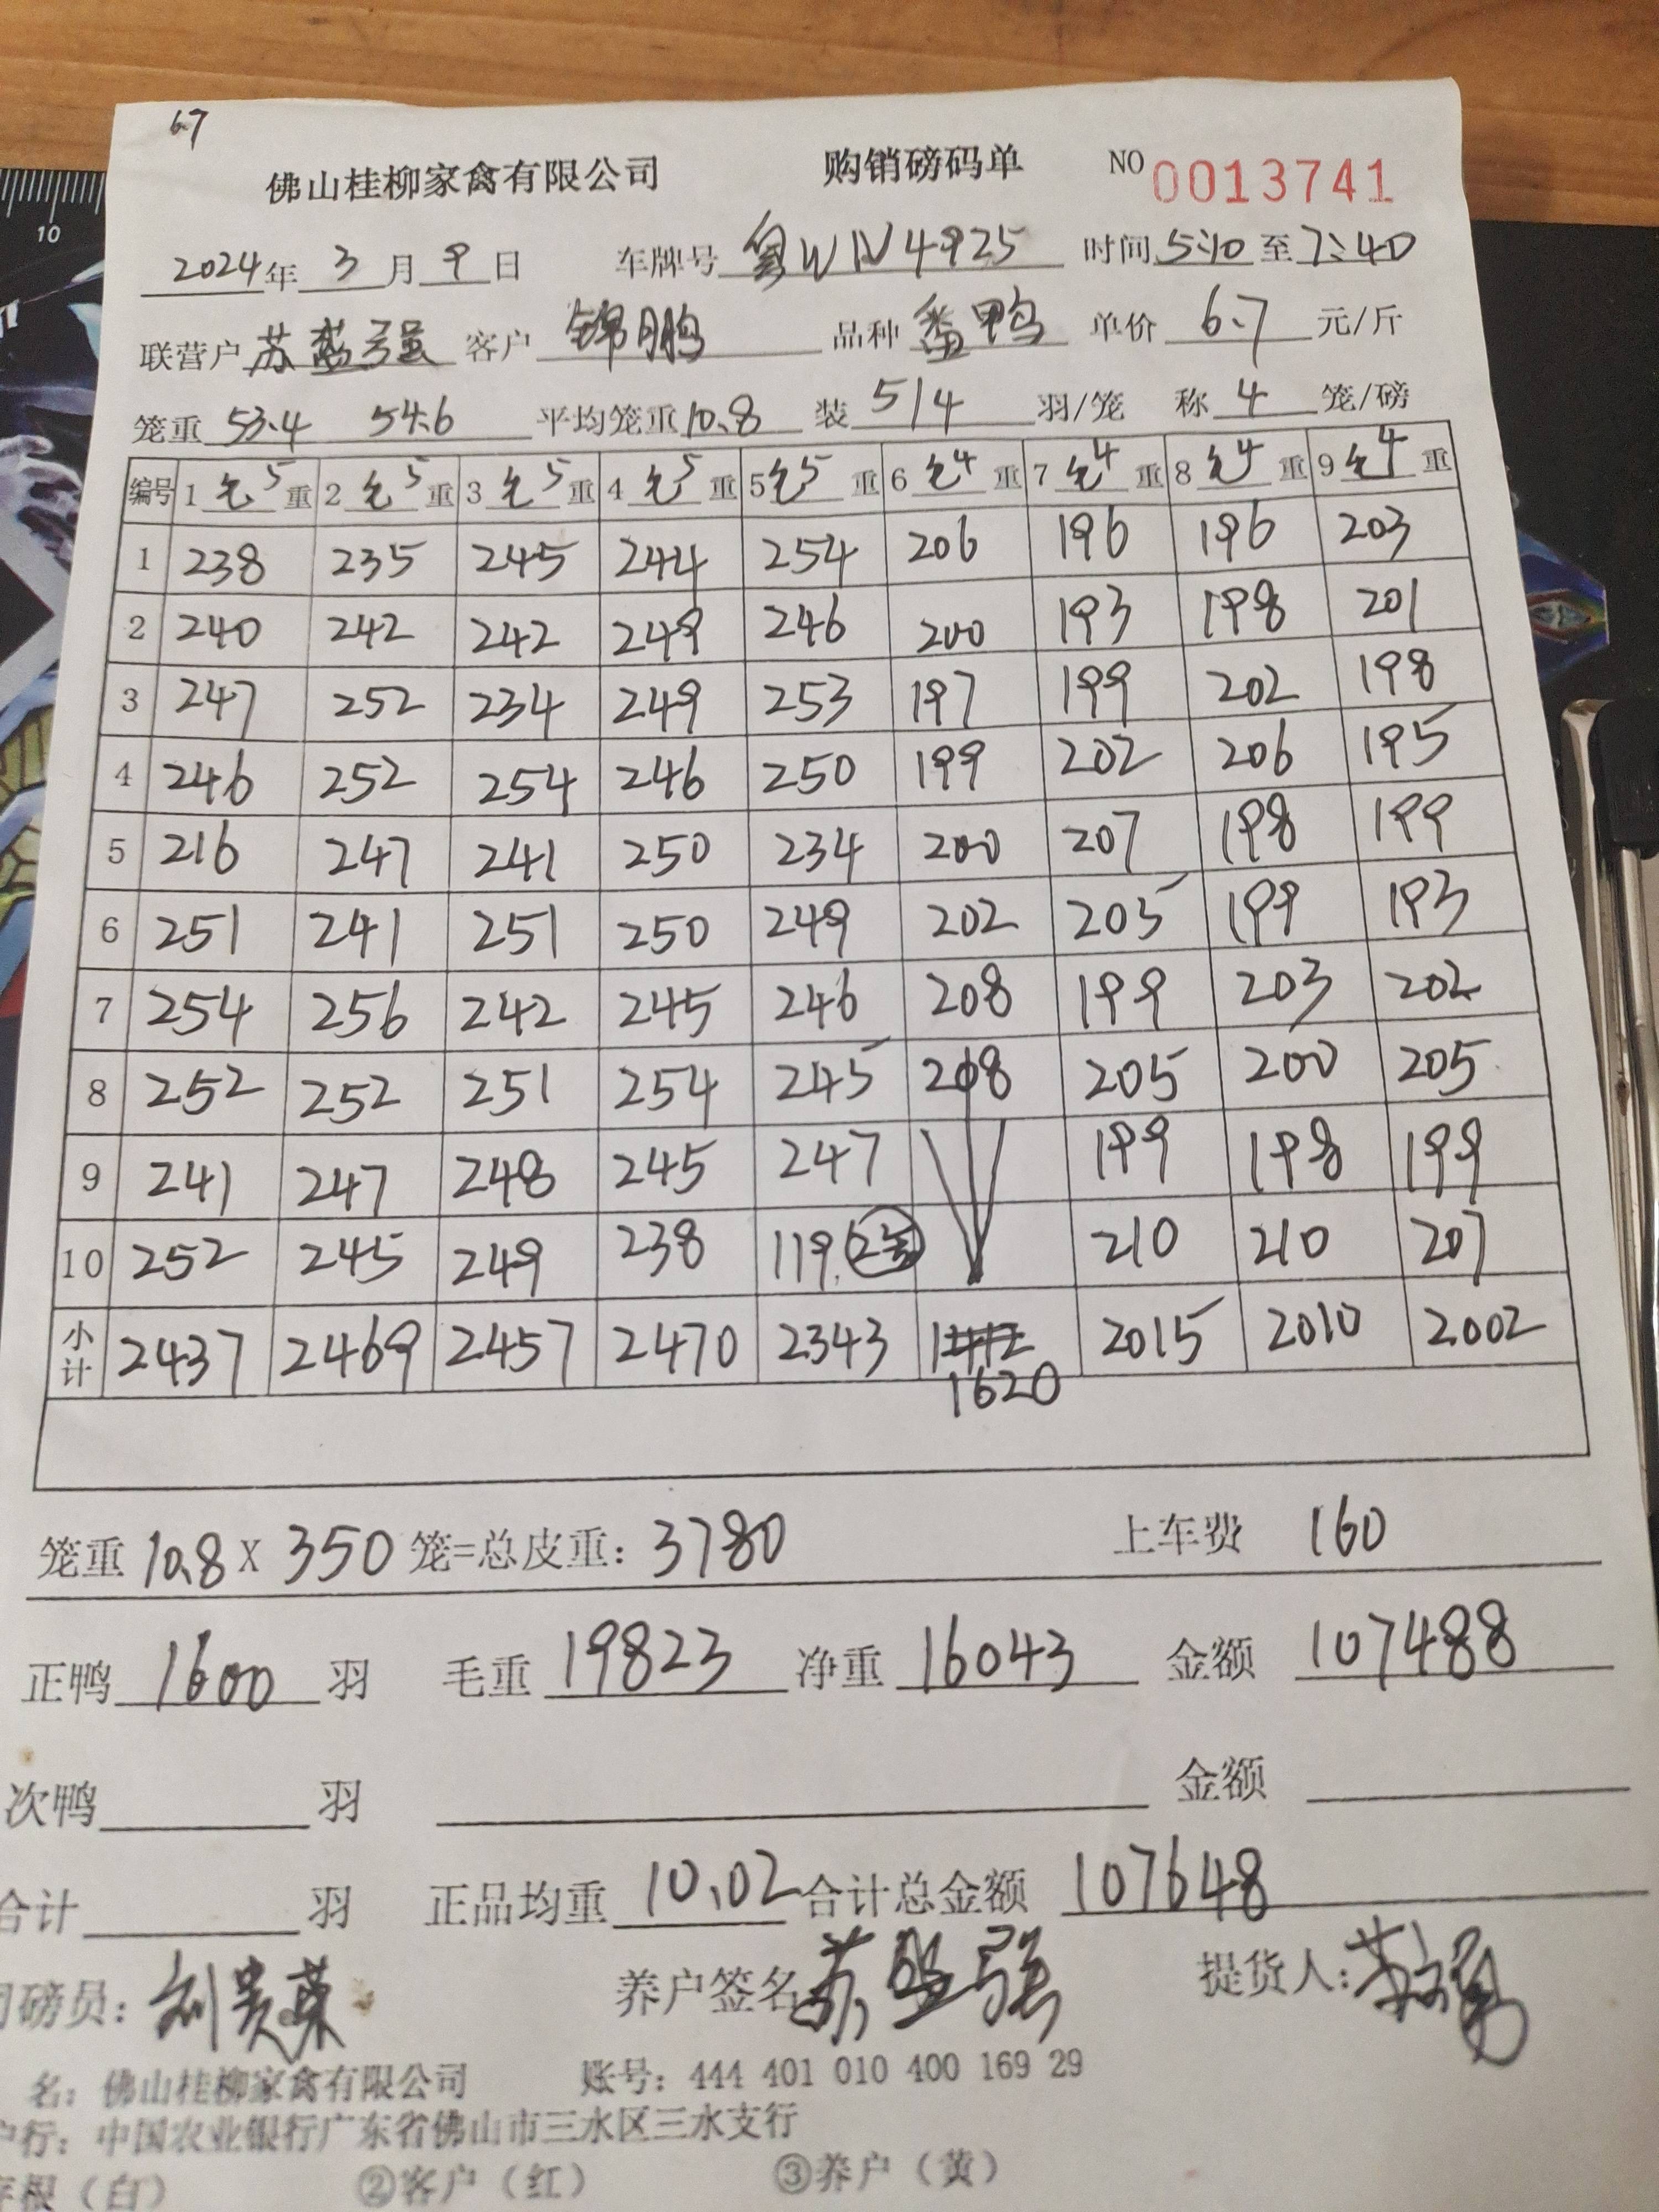 6.7
佛山桂柳家禽有限公司 购销磅码单 NO 0013741
2024年 3 月 9 日 车牌号 粤WN4925 时间 5:10 至 7:40
联营户 苏 强 客户 锦鹏 品种 番鸭 单价 6.7 元/斤
笼重 53.4 54.6 平均笼重 10.8 装 5/4 羽/笼 称 4 笼/磅
编号 1 毛5 重 2 毛5 重 3 毛5 重 4 毛5 重 5 毛5 重 6 毛4 重 7 毛4 重 8 毛4 重 9 毛4 重
1 238 235 245 244 254 206 196 196 203
2 240 242 242 249 246 200 193 198 201
3 247 252 234 249 253 197 199 202 198
4 246 252 254 246 250 199 202 206 195
5 216 247 241 250 234 200 207 198 199
6 251 241 251 250 249 202 205 199 193
7 254 256 242 245 246 208 199 203 202
8 252 252 251 254 245 208 205 200 205
9 241 247 248 245 247 199 198 199
10 252 245 249 238 119 210 210 207
小计 2437 2469 2457 2470 2343 1412 2015 2010 2002
1620
笼重 10.8 X 350 笼=总皮重: 3780 上车费 160
正鸭 1600 羽 毛重 19823 净重 16043 金额 107488
次鸭 羽 金额
合计 羽 正品均重 10.02 合计总金额 107648
磅员: 刘贵荣 养户签名 苏 强 提货人:
名: 佛山桂柳家禽有限公司 账号: 444 401 010 400 169 29
户行: 中国农业银行广东省佛山市三水区三水支行
存根(白) ②客户(红) ③养户(黄)